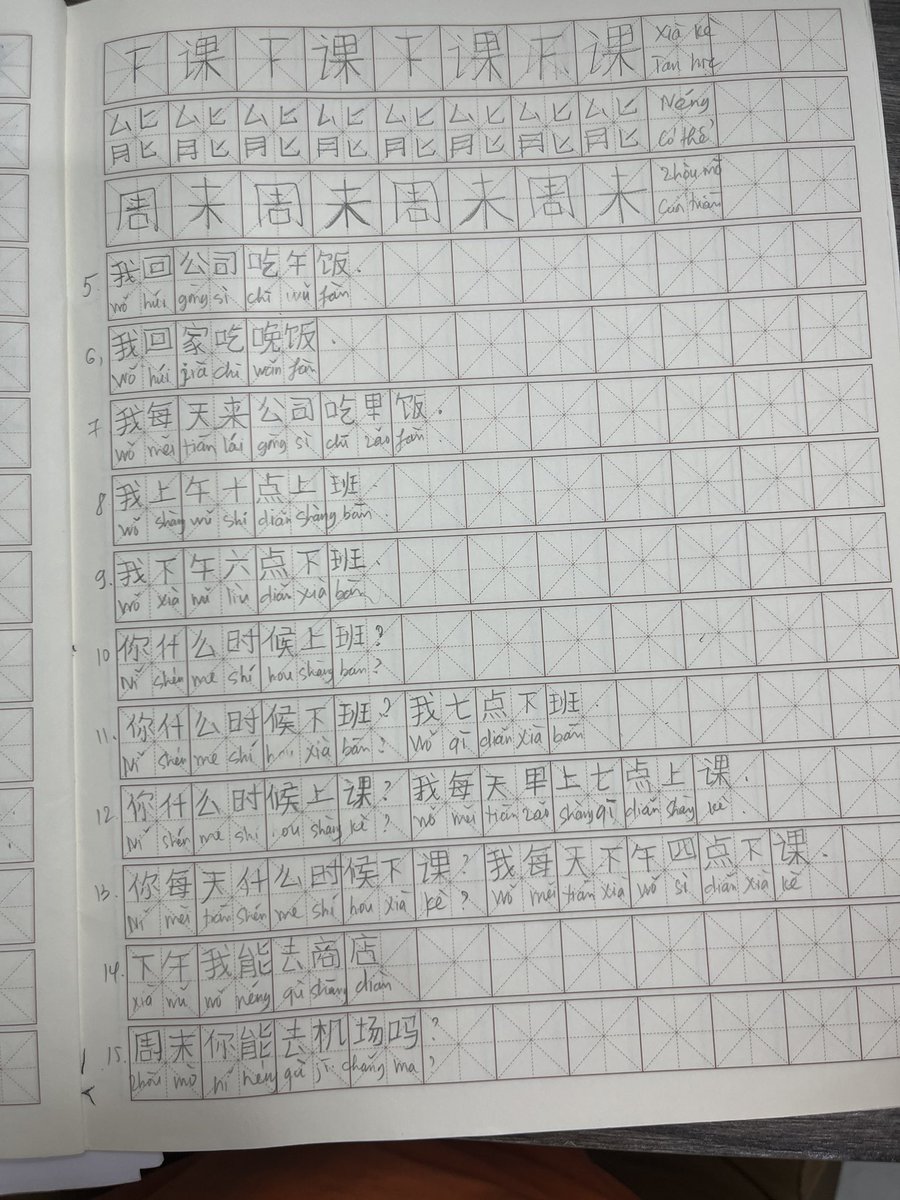 下 课 下 课 下 课 下 课 Xià kè
Tan học
能 能 能 能 能 能 能 能 Néng
Có thể
周 末 周 末 周 末 周 末 Zhōu mò
Cuối tuần
5. 我回公司吃午饭.
wǒ húi gōng sì chī wǔ fàn
6, 我回家吃晚饭.
wǒ húi jiā chī wǎn fàn
7. 我每天来公司吃早饭.
wǒ měi tiān lái gōng sì chī zǎo fàn.
8 我上午十点上班.
wǒ shàng wǔ shí diǎn shàng bān
9. 我下午六点下班.
wǒ xià wǔ liù diǎn xià bān
10 你什么时候上班?
Nǐ shén me shí hou shàng ban?
11. 你什么时候下班? 我七点下班.
Nǐ shén me shí xià bān? Wǒ qī diǎn xià bān
12 你什么时候上课? 我每天早上七点上课.
Nǐ shén me shí ou shàng kè? wǒ měi tiān zǎo shàng qī diǎn shàng kè
13. 你每天什么时候下课? 我每天下午四点下课.
Nǐ měi tiān shén me shí hou xià kè? Wǒ měi tiān xià wǒ sì diǎn xià kè
14. 下午我能去商店
xià wǔ wǒ néng qù shāng diàn
15. 周末你能去机场吗?
zhōu mò nǐ néng qù jī chǎng ma?